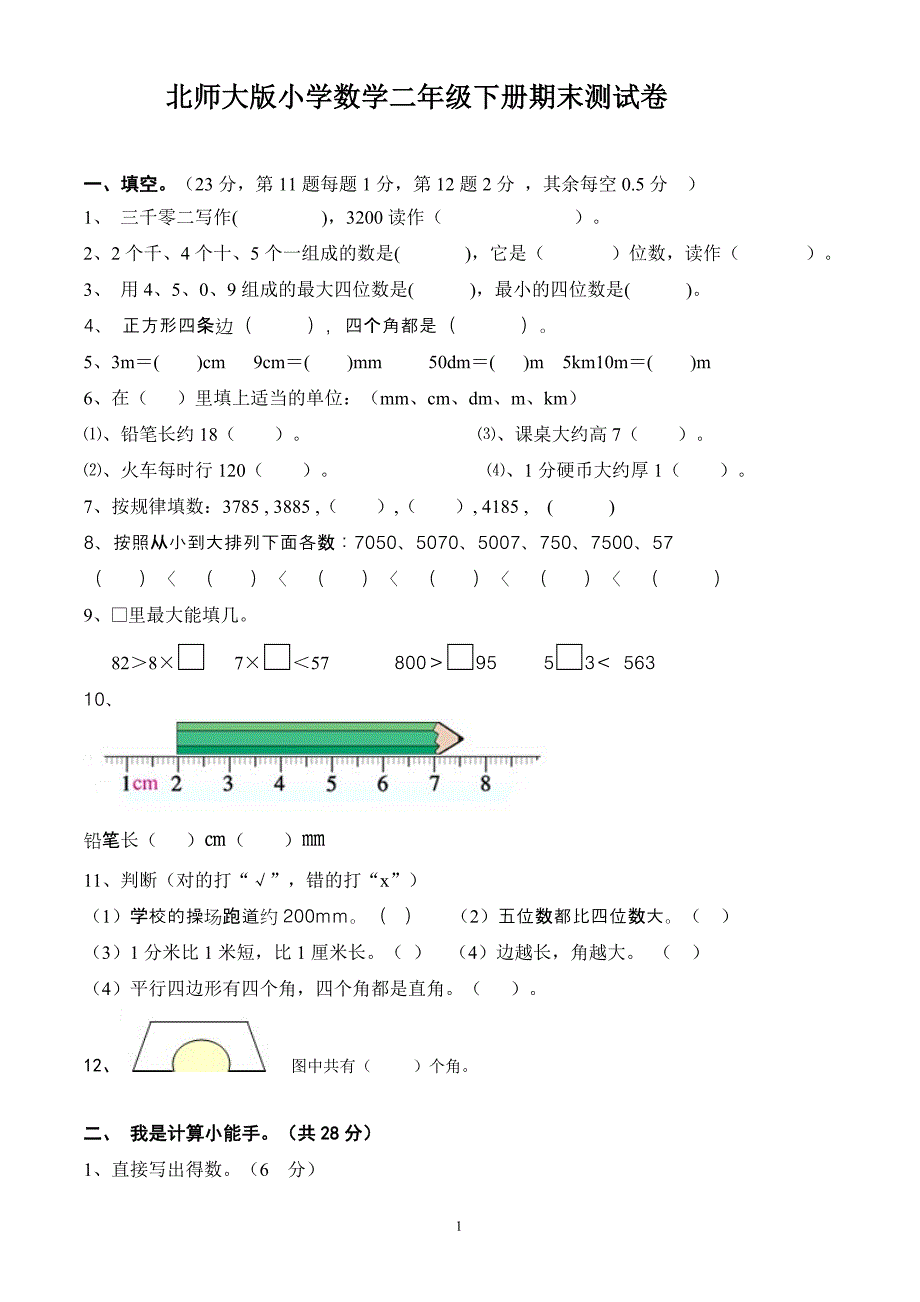 北师大版小学数学二年级下册期末测试卷
一、填空。（23 分，第 11 题每题 1 分，第 12 题 2 分 ，其余每空 0.5 分 ）
1、 三千零二写作( )，3200 读作（ ）。
2、2 个千、4 个十、5 个一组成的数是( )，它是（ ）位数，读作（ ）。
3、 用 4、5、0、9 组成的最大四位数是( )，最小的四位数是( )。
4、 正方形四条边（ ），四个角都是（ ）。
5、3m＝( )cm 9cm＝( )mm 50dm＝( )m 5km10m＝( )m
6、在（ ）里填上适当的单位：（mm、cm、dm、m、km）
⑴、铅笔长约 18（ ）。 ⑶、课桌大约高 7（ ）。
⑵、火车每时行 120（ ）。 ⑷、1 分硬币大约厚 1（ ）。
7、按规律填数：3785 , 3885 ,（ ）,（ ）, 4185 , ( )
8、按照从小到大排列下面各数：7050、5070、5007、750、7500、57
（ ）〈 （ ）〈 （ ）〈 （ ）〈 （ ）〈 （ ）
9、□里最大能填几。
82＞8×□ 7×□＜57 800＞□95 5□3＜ 563
10、
1cm 2 3 4 5 6 7 8
铅笔长（ ）㎝（ ）㎜
11、判断（对的打“√”，错的打“x”）
（1）学校的操场跑道约 200mm。（ ） （2）五位数都比四位数大。（ ）
（3）1 分米比 1 米短，比 1 厘米长。（ ） （4）边越长，角越大。 （ ）
（4）平行四边形有四个角，四个角都是直角。（ ）。
12、 图中共有（ ）个角。
二、 我是计算小能手。（共 28 分）
1、直接写出得数。（6 分）
1